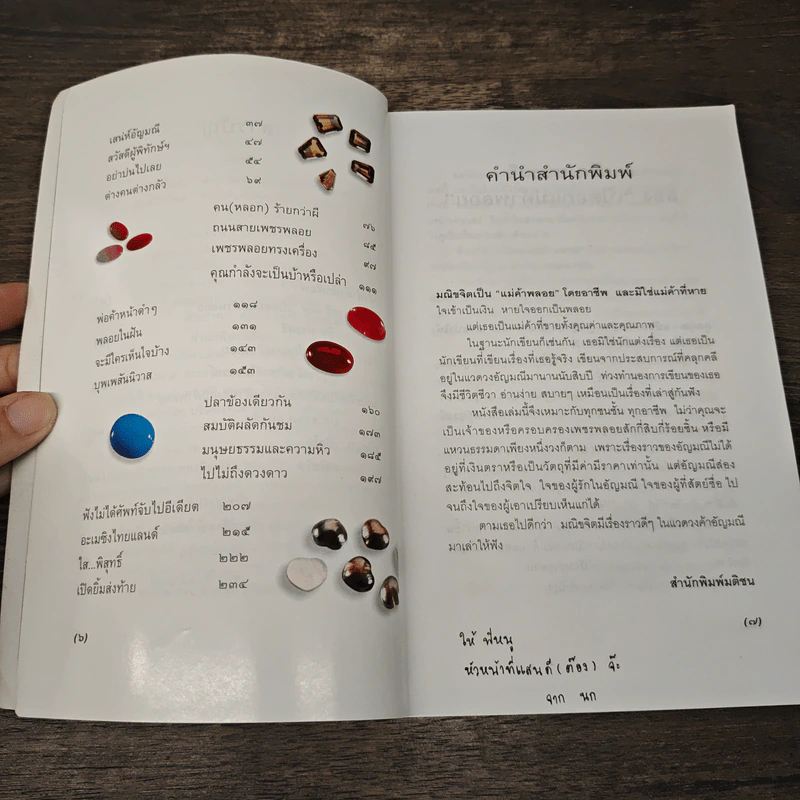 เสน่ห์อัญมณี ๓๗
สวัสดีผู้พิทักษ์ฯ ๔๗
อย่าบ่นไปเลย ๕๔
ต่างคนต่างกลัว ๖๙
คน(หลอก) ร้ายกว่าผี ๗๖
ถนนสายเพชรพลอย ๘๕
เพชรพลอยทรงเครื่อง ๙๗
คุณกำลังจะเป็นบ้าหรือเปล่า ๑๑๑
พ่อค้าหน้าดำๆ ๑๑๘
พลอยในฝัน ๑๓๑
จะมีใครเห็นใจบ้าง ๑๔๓
บุพเพสันนิวาส ๑๕๓
ปลาข้องเดียวกัน ๑๖๐
สมบัติผลัดกันชม ๑๗๓
มนุษยธรรมและความหิว ๑๘๕
ไปไม่ถึงดวงดาว ๑๙๗
ฟังไม่ได้ศัพท์จับไปอีเดียต ๒๐๗
อะเมซิงไทยแลนด์ ๒๑๕
ใส...พิสุทธิ์ ๒๒๒
เปิดยิ้มส่งท้าย ๒๓๔
(๖)
คำนำสำนักพิมพ์
มณิขจิตเป็น "แม่ค้าพลอย" โดยอาชีพ และมิใช่แม่ค้าที่หาย
ใจเข้าเป็นเงิน หายใจออกเป็นพลอย
แต่เธอเป็นแม่ค้าที่ขายทั้งคุณค่าและคุณภาพ
ในฐานะนักเขียนก็เช่นกัน เธอมิใช่นักแต่งเรื่อง แต่เธอเป็น
นักเขียนที่เขียนเรื่องที่เธอรู้จริง เขียนจากประสบการณ์ที่คลุกคลี
อยู่ในแวดวงอัญมณีมานานนับสิบปี ท่วงทำนองการเขียนของเธอ
จึงมีชีวิตชีวา อ่านง่าย สบายๆ เหมือนเป็นเรื่องที่เล่าสู่กันฟัง
หนังสือเล่มนี้จึงเหมาะกับทุกชนชั้น ทุกอาชีพ ไม่ว่าคุณจะ
เป็นเจ้าของหรือครอบครองเพชรพลอยสักกี่สิบกี่ร้อยชิ้น หรือมี
แหวนธรรมดาเพียงหนึ่งวงก็ตาม เพราะเรื่องราวของอัญมณีไม่ได้
อยู่ที่เงินตราหรือเป็นวัตถุที่มีค่ามีราคาเท่านั้น แต่อัญมณีส่อง
สะท้อนไปถึงจิตใจ ใจของผู้รักในอัญมณี ใจของผู้ที่สัตย์ซื่อ ไป
จนถึงใจของผู้เอาเปรียบเห็นแก่ได้
ตามเธอไปดีกว่า มณิขจิตมีเรื่องราวดีๆ ในแวดวงค้าอัญมณี
มาเล่าให้ฟัง
สำนักพิมพ์มติชน
(๗)
ให้ พี่หนู
หัวหน้าที่แสนดี (ต๊อง) จ๊ะ
จาก นก